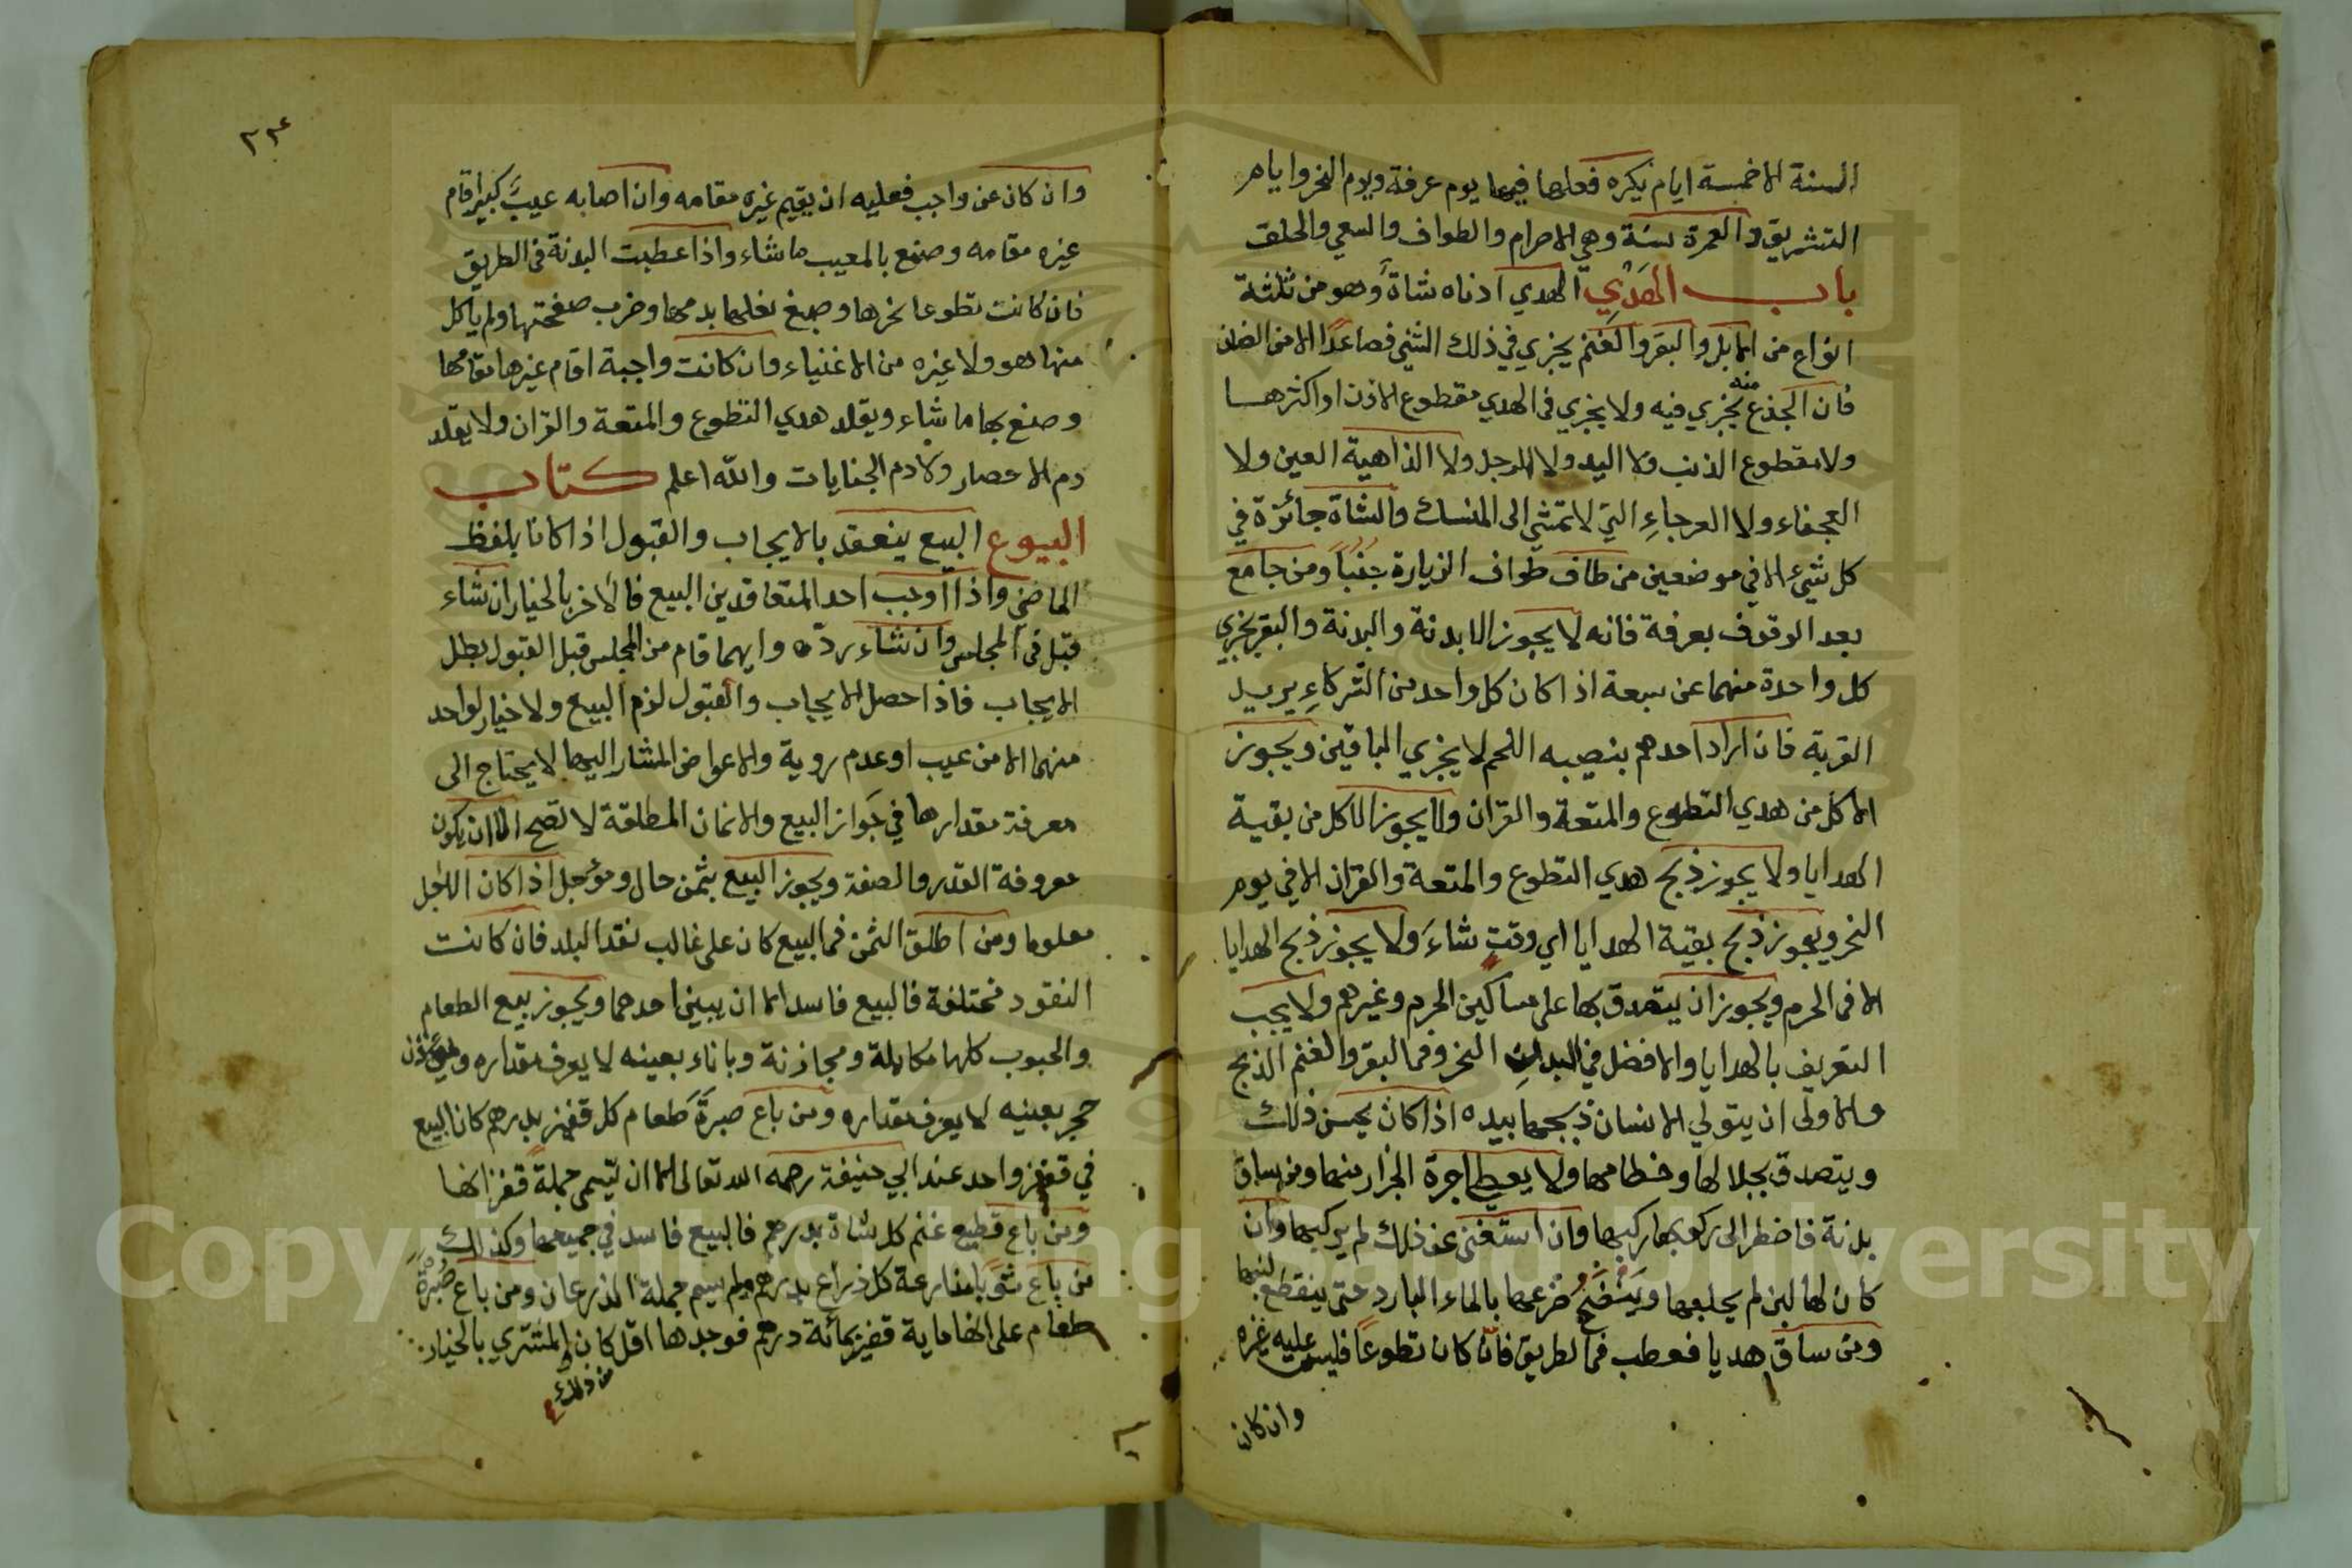 السنة الا خمسة ايام يكره فعلها فيها يوم عرفة ويوم النحر وايام
التشريق والعمرة سنة وهي الاحرام والطواف والسعي والحلق
باب الهَدْيِ الهدي ادناه شاة وهو من ثلثة
انواع من الابل والبقر والغنم يجزي في ذلك الثني فصاعدًا الا من الضان
فان الجذع منه يجزي فيه ولا يجزي في الهدي مقطوع الاذن او اكثرها
ولا مقطوع الذنب ولا اليد ولا الرجل ولا الذاهبة العين ولا
العجفاء ولا العرجاءِ التي لا تمشي الى المنسك والشاة جائزة في
كل شيء الا في موضعين من طاف طواف الزيارة جنُبًا ومن جامع
بعد الوقوف بعرفة فانه لا يجوز الا بدنة والبدنة والبقر يجزي
كل واحدة منهما عن سبعة اذا كان كل واحد من الشركاءِ يريد
القربة فان اراد احدهم بنصيبه اللحم لا يجزي الباقين ويجوز
الاكل من هدي التطوع والمتعة والقران ولا يجوز الاكل من بقية
الهدايا ولا يجوز ذبح هدي التطوع والمتعة والقران الا في يوم
النحر ويجوز ذبح بقية الهدايا اي وقتٍ شاءَ ولا يجوز ذبح الهدايا
الا في الحرم ويجوز ان يتصدق بها على مساكين الحرم وغيرهم ولا يجب
التعريف بالهدايا والافضل في البدن النحر وفي البقر والغنم الذبح
والاولى ان يتولي الانسان ذبحها بيده اذا كان يحسن ذلك
ويتصدق بجلالها وخطامها ولا يعطي اجرة الجزار منها ومن ساق
بدنة فاضطر الى ركوبها ركبها وان استغنى عن ذلك لم يركبها وان
كان لها لبن لم يحلبها ويَنْضَحُ ضرعها بالماء البارد حتى ينقطع لبنها
ومن ساق هديا فعطب في الطريق فان كان تطوعًا فليس عليه غيره
وان كان
٢٣٤
وان كان عن واجب فعليه ان يقيم غيره مقامه وان اصابه عيبٌ كبير اقام
غيره مقامه وصنع بالمعيب ما شاء واذا عطبت البدنة في الطريق
فان كانت تطوعا نحرها وصبغ نعلها بدمها وضرب صفحتها ولم ياكل
منها هو ولا غيره من الاغنياء وان كانت واجبة اقام غيرها مقامها
وصنع بها ما شاء ويقلد هدي التطوع والمتعة والقران ولا يقلد
دم الاحصار ولا دم الجنايات والله اعلم كتاب
البيوع البيع ينعقد بالايجاب والقبول اذا كانا بلفظ
الماضي واذا اوجب احد المتعاقدين البيع فالاخر بالخيار ان شاء
قبل في المجلس وان شاء ردّه وايهما قام من المجلس قبل القبول بطل
الايجاب فاذا حصل الايجاب والقبول لزم البيع ولا خيار لواحد
منهما الا من عيب او عدم روية والاعواض المشار اليها لا يحتاج الى
معرفة مقدارها في جَواز البيع والاثمان المطلقة لا تصح الا ان يكون
معروفة القدر والصفة ويجوز البيع بثمن حال ومؤجل اذا كان الاجل
معلوما ومن اطلق الثمن في البيع كان على غالب نقد البلد فان كانت
النقود مختلفة فالبيع فاسد الا ان يبين احدهما ويجوز بيع الطعام
والحبوب كلها مكايلة ومجازفة وباناء بعينه لا يعرف مقداره وبوزن
حجر بعينه لا يعرف مقداره ومن باع صبرَةَ طعام كل قفيز بدرهم كان البيع
في قفيز واحد عند ابي حنيفة رحمه الله تعالى الا ان يُسمى جملة قفزانها
ومن باع قطيع غنم كل شاة بدرهم فالبيع فاسد في جميعها وكذلك
من باع ثوبا مذارعة كل ذراع بدرهم ولم يسم جملة الذرعان ومن باع صُبْرَةً
طعام على انها ماية قفيز بمائة درهم فوجدها اقل كان المشتري بالخيار
من ذلك
Copyright © King Saud University